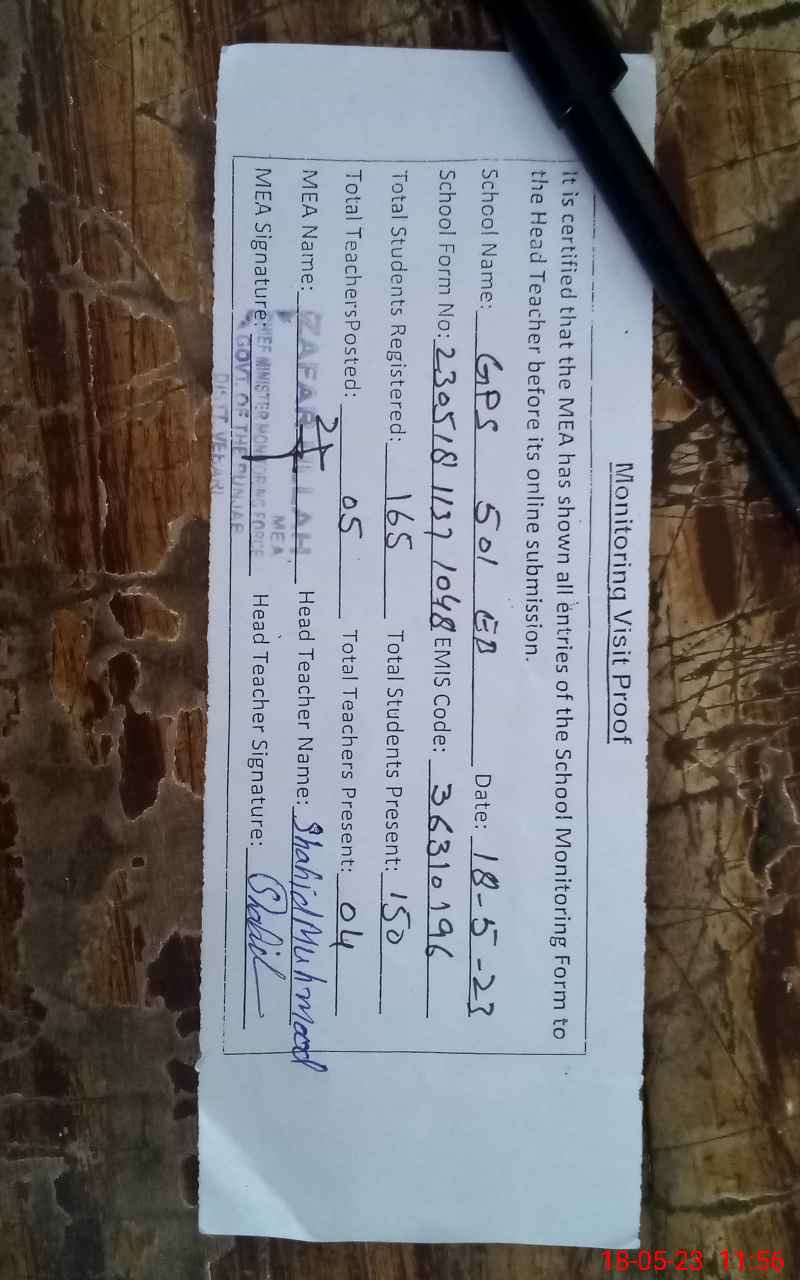 Monitoring Visit Proof
It is certified that the MEA has shown all entries of the School Monitoring Form to
the Head Teacher before its online submission.
School Name: GPS 501 EB Date: 18-5-23
School Form No: 230518 1137 1048 EMIS Code: 36310196
Total Students Registered: 165 Total Students Present: 150
Total TeachersPosted: 05 Total Teachers Present: 04
MEA Name: ZAFAR ULLAH Head Teacher Name: Shahid Muhmood
MEA
MEA Signature: Head Teacher Signature: Shahid
CHIEF MINISTER MONITORING FORCE
GOVT. OF THE PUNJAB
DISTT. VEHARI
18-05-23 11:56